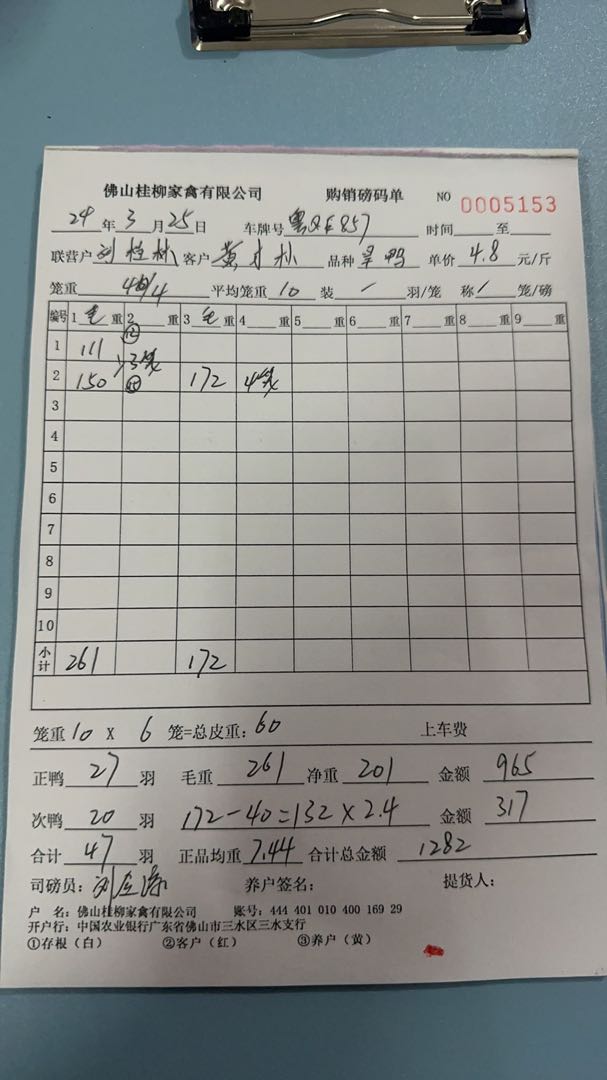 佛山桂柳家禽有限公司 购销磅码单 NO 0005153
24年3月25日 车牌号 粤 857 时间 至
联营户 刘桂林 客户 黄才林 品种 旱鸭 单价 4.8 元/斤
笼重 40/4 平均笼重 10 装 / 羽/笼 称 / 笼/磅
编号 1 毛 重 2 重 3 毛 重 4 重 5 重 6 重 7 重 8 重 9 重
1 111 12 3笼
2 150 15 172 4笼
3
4
5
6
7
8
9
10
小计 261 172
笼重 10 X 6 笼=总皮重: 60 上车费
正鸭 27 羽 毛重 261 净重 201 金额 965
次鸭 20 羽 172-40=132×2.4 金额 317
合计 47 羽 正品均重 7.44 合计总金额 1282
司磅员: 刘 养户签名: 提货人:
户 名: 佛山桂柳家禽有限公司 账号: 444 401 010 400 169 29
开户行: 中国农业银行广东省佛山市三水区三水支行
①存根（白） ②客户（红） ③养户（黄）